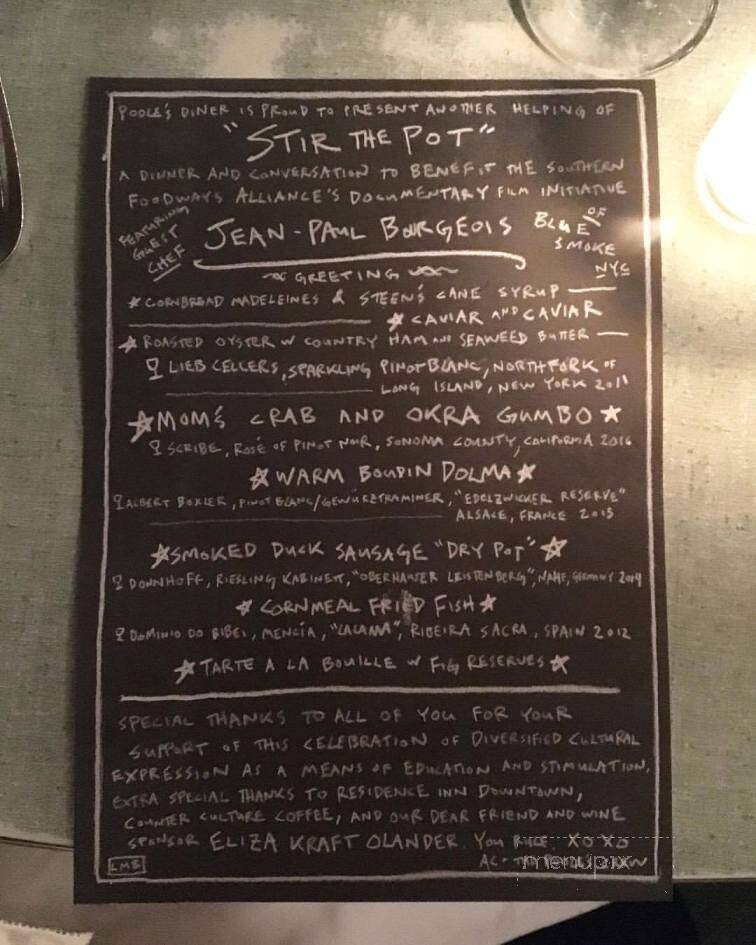 POOLE'S DINER IS PROUD TO PRESENT ANOTHER HELPING OF
"STIR THE POT"
A DINNER AND CONVERSATION TO BENEFIT THE SOUTHERN
FOODWAYS ALLIANCE'S DOCUMENTARY FILM INITIATIVE
FEATURING
GUEST
CHEF
JEAN-PAUL BOURGEOIS
OF
BLUE
SMOKE
NYC
GREETING
CORNBREAD MADELEINES & STEEN'S CANE SYRUP
CAVIAR AND CAVIAR
ROASTED OYSTER W COUNTRY HAM AND SEAWEED BUTTER
LIEB CELLERS, SPARKLING PINOT BLANC, NORTH FORK OF
LONG ISLAND, NEW YORK 2011
MOM'S CRAB AND OKRA GUMBO
SCRIBE, ROSÉ OF PINOT NOIR, SONOMA COUNTY, CALIFORNIA 2016
WARM BOUDIN DOLMA
ALBERT BOXLER, PINOT BLANC/GEWÜRZTRAMINER, "EDELZWICKER RESERVE"
ALSACE, FRANCE 2015
SMOKED DUCK SAUSAGE "DRY POT"
DONNHOFF, RIESLING KABINETT, "OBERHAUSER LEISTENBERG", NAHE, GERMANY 2014
CORNMEAL FRIED FISH
DOMINIO DO BIBEI, MENCÍA, "LALAMA", RIBEIRA SACRA, SPAIN 2012
TARTE A LA BOUILLE W FIG RESERVES
SPECIAL THANKS TO ALL OF YOU FOR YOUR
SUPPORT OF THIS CELEBRATION OF DIVERSIFIED CULTURAL
EXPRESSION AS A MEANS OF EDUCATION AND STIMULATION,
EXTRA SPECIAL THANKS TO RESIDENCE INN DOWNTOWN,
COUNTER CULTURE COFFEE, AND OUR DEAR FRIEND AND WINE
SPONSOR ELIZA KRAFT OLANDER. YOU RULE. XOXO
AC
LMB
menupix